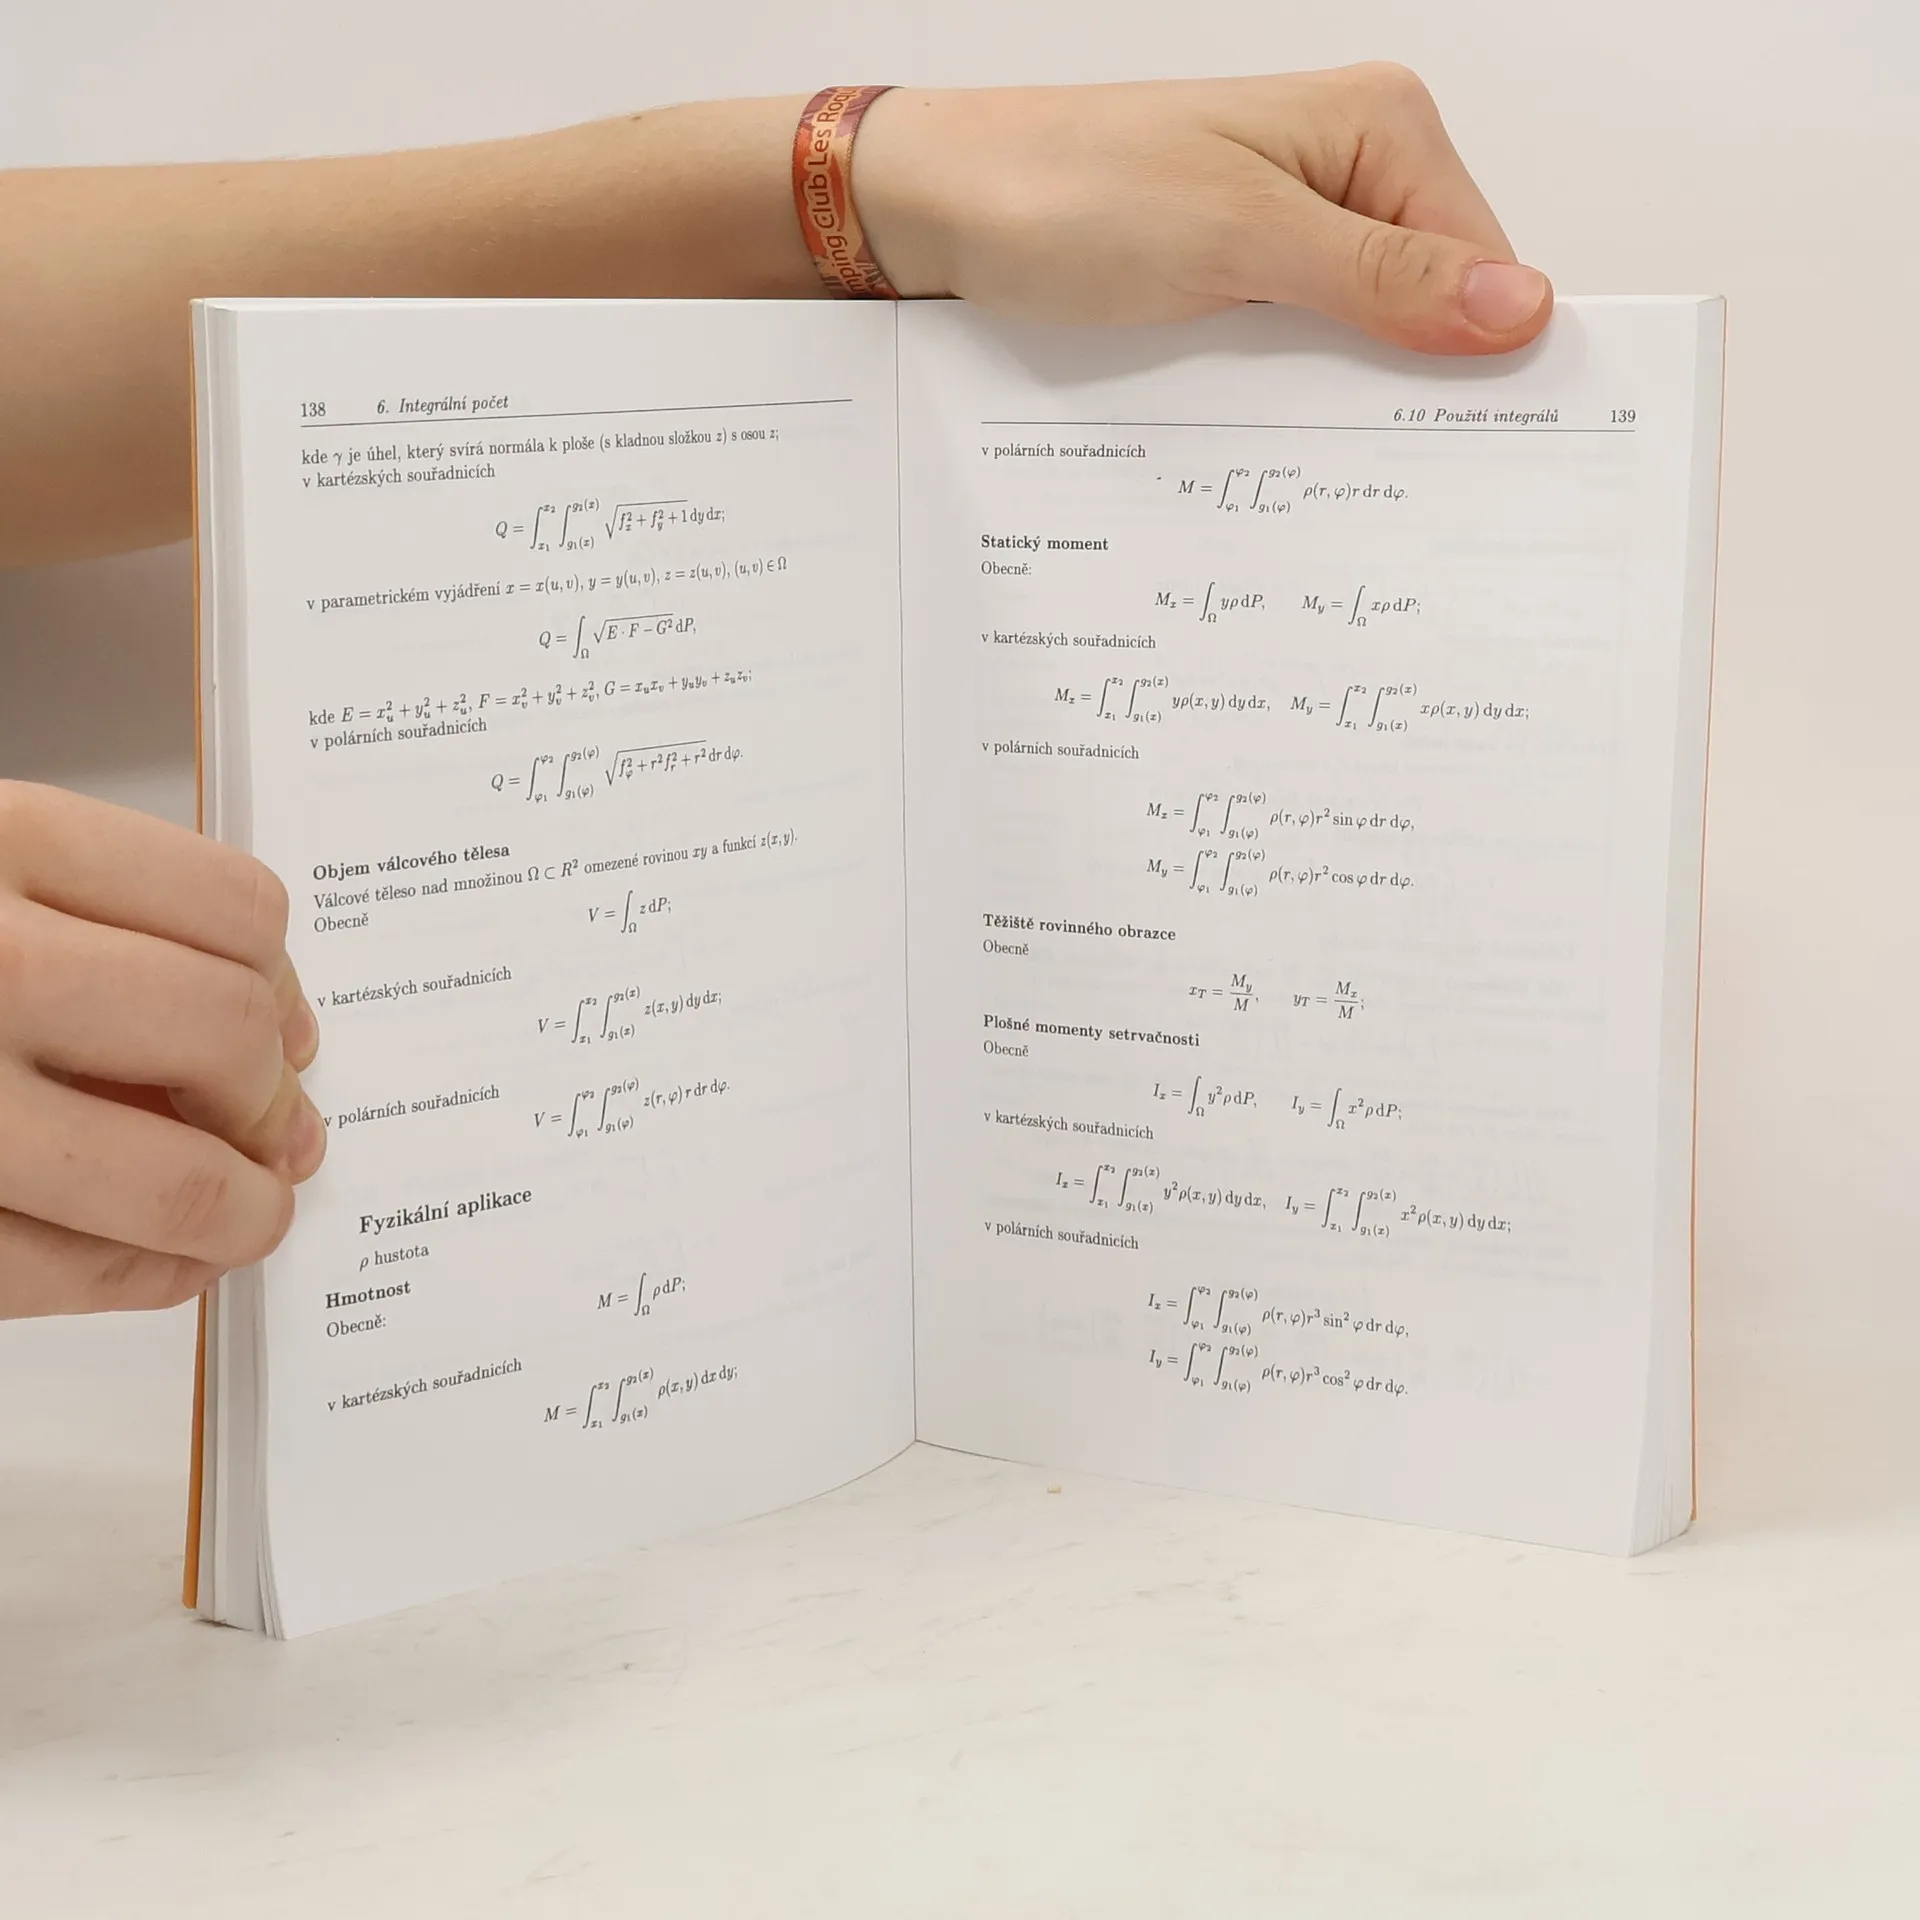 mping Club Les Roqu
138 6. Integrální počet
kde γ je úhel, který svírá normála k ploše (s kladnou složkou z) s osou z;
v kartézských souřadnicích
Q = ∫_{x₁}^{x₂} ∫_{g₁(x)}^{g₂(x)} √(f_x² + f_y² + 1) dy dx;
v parametrickém vyjádření x = x(u, v), y = y(u, v), z = z(u, v), (u, v) ∈ Ω
Q = ∫_Ω √(E · F − G²) dP,
kde E = x_u² + y_u² + z_u², F = x_v² + y_v² + z_v², G = x_u x_v + y_u y_v + z_u z_v;
v polárních souřadnicích
Q = ∫_{φ₁}^{φ₂} ∫_{g₁(φ)}^{g₂(φ)} √(f_φ² + r² f_r² + r²) dr dφ.
Objem válcového tělesa
Válcové těleso nad množinou Ω ⊂ R² omezené rovinou xy a funkcí z(x, y).
Obecně
V = ∫_Ω z dP;
v kartézských souřadnicích
V = ∫_{x₁}^{x₂} ∫_{g₁(x)}^{g₂(x)} z(x, y) dy dx;
v polárních souřadnicích
V = ∫_{φ₁}^{φ₂} ∫_{g₁(φ)}^{g₂(φ)} z(r, φ) r dr dφ.
Fyzikální aplikace
ρ hustota
Hmotnost
Obecně:
M = ∫_Ω ρ dP;
v kartézských souřadnicích
M = ∫_{x₁}^{x₂} ∫_{g₁(x)}^{g₂(x)} ρ(x, y) dx dy;
6.10 Použití integrálů 139
v polárních souřadnicích
M = ∫_{φ₁}^{φ₂} ∫_{g₁(φ)}^{g₂(φ)} ρ(r, φ)r dr dφ.
Statický moment
Obecně:
M_x = ∫_Ω yρ dP, M_y = ∫_Ω xρ dP;
v kartézských souřadnicích
M_x = ∫_{x₁}^{x₂} ∫_{g₁(x)}^{g₂(x)} yρ(x, y) dy dx, M_y = ∫_{x₁}^{x₂} ∫_{g₁(x)}^{g₂(x)} xρ(x, y) dy dx;
v polárních souřadnicích
M_x = ∫_{φ₁}^{φ₂} ∫_{g₁(φ)}^{g₂(φ)} ρ(r, φ)r² sin φ dr dφ,
M_y = ∫_{φ₁}^{φ₂} ∫_{g₁(φ)}^{g₂(φ)} ρ(r, φ)r² cos φ dr dφ.
Těžiště rovinného obrazce
Obecně
x_T = M_y/M, y_T = M_x/M;
Plošné momenty setrvačnosti
Obecně
I_x = ∫_Ω y²ρ dP, I_y = ∫_Ω x²ρ dP;
v kartézských souřadnicích
I_x = ∫_{x₁}^{x₂} ∫_{g₁(x)}^{g₂(x)} y²ρ(x, y) dy dx, I_y = ∫_{x₁}^{x₂} ∫_{g₁(x)}^{g₂(x)} x²ρ(x, y) dy dx;
v polárních souřadnicích
I_x = ∫_{φ₁}^{φ₂} ∫_{g₁(φ)}^{g₂(φ)} ρ(r, φ)r³ sin² φ dr dφ,
I_y = ∫_{φ₁}^{φ₂} ∫_{g₁(φ)}^{g₂(φ)} ρ(r, φ)r³ cos² φ dr dφ.